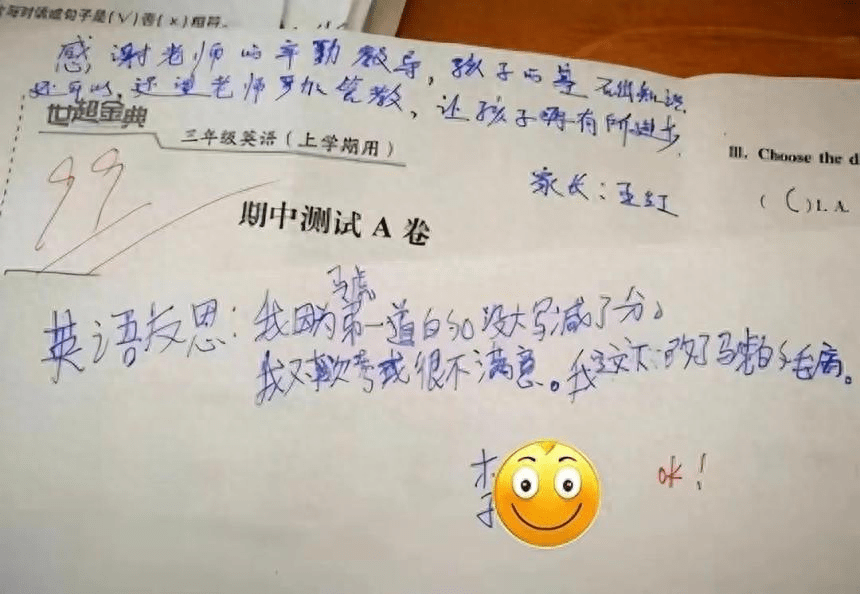 与对话或句子是(√)否(×)相符。
感谢老师的辛勤教导,孩子的基础知识
还可以,还望老师多加管教,让孩子再有所进步
世超金典
三年级英语(上学期用)
III. Choose the d
家长:王红
( C )1. A.
99
期中测试 A 卷
马虎
英语反思:我因为第一道的go没大写减了分。
我对这次考成绩很不满意。我这次改了马虎的毛病。
李
ok!